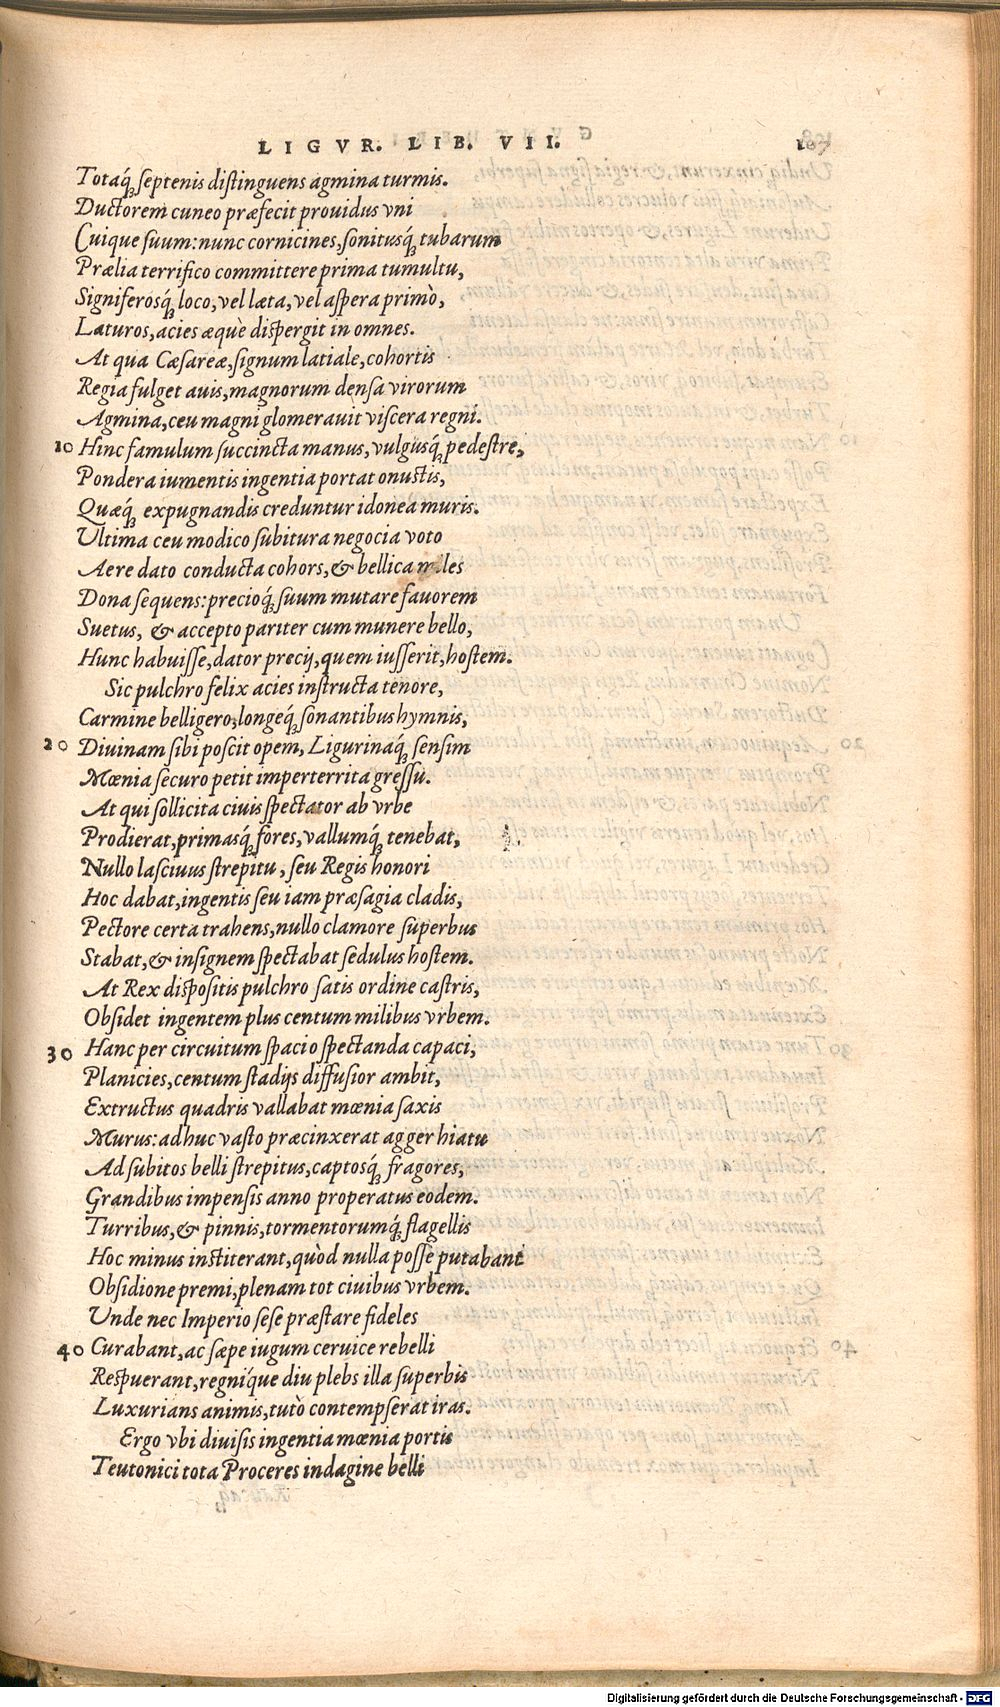 LIGVR. LIB. VII. 107
Totaq́; septenis distinguens agmina turmis.
Ductorem cuneo præfecit prouidus vni
Cuique suum: nunc cornicines, sonitusq́; tubarum
Prælia terrifico committere prima tumultu,
Signiferosq́; loco, vel læta, vel aspera primò,
Laturos, acies æquè dispergit in omnes.
At qua Cæsareæ, signum latiale, cohortis
Regia fulget auis, magnorum densa virorum
Agmina, ceu magni glomerauit viscera regni.
10 Hinc famulum succincta manus, vulgusq́; pedestre,
Pondera iumentis ingentia portat onustis,
Quæq́; expugnandis creduntur idonea muris.
Ultima ceu modico subitura negocia voto
Aere dato conducta cohors, & bellica miles
Dona sequens: precioq́; suum mutare fauorem
Suetus, & accepto pariter cum munere bello,
Hunc habuisse, dator precij, quem iusserit, hostem.
Sic pulchro felix acies instructa tenore,
Carmine belligero, longeq́; sonantibus hymnis,
20 Diuinam sibi poscit opem, Ligurinaq́; sensim
Mœnia securo petit imperterrita gressu.
At qui sollicita ciuis spectator ab vrbe
Prodierat, primasq́; fores, vallumq́; tenebat,
Nullo lasciuus strepitu, seu Regis honori
Hoc dabat, ingentis seu iam præsagia cladis,
Pectore certa trahens, nullo clamore superbus
Stabat, & insignem spectabat sedulus hostem.
At Rex dispositis pulchro satis ordine castris,
Obsidet ingentem plus centum milibus vrbem.
30 Hanc per circuitum spacio spectanda capaci,
Planicies, centum stadijs diffusior ambit,
Extructus quadris vallabat mœnia saxis
Murus: adhuc vasto præcinxerat agger hiatu
Ad subitos belli strepitus, captosq́; fragores,
Grandibus impensis anno properatus eodem.
Turribus, & pinnis, tormentorumq́; flagellis
Hoc minus institerant, quòd nulla posse putabant
Obsidione premi, plenam tot ciuibus vrbem.
Unde nec Imperio sese præstare fideles
40 Curabant, ac sæpe iugum ceruice rebelli
Respuerant, regniq́ue diu plebs illa superbis
Luxurians animis, tutò contempserat iras.
Ergo vbi diuisis ingentia mœnia portis
Teutonici tota Proceres indagine belli
Digitalisierung gefördert durch die Deutsche Forschungsgemeinschaft - DFG